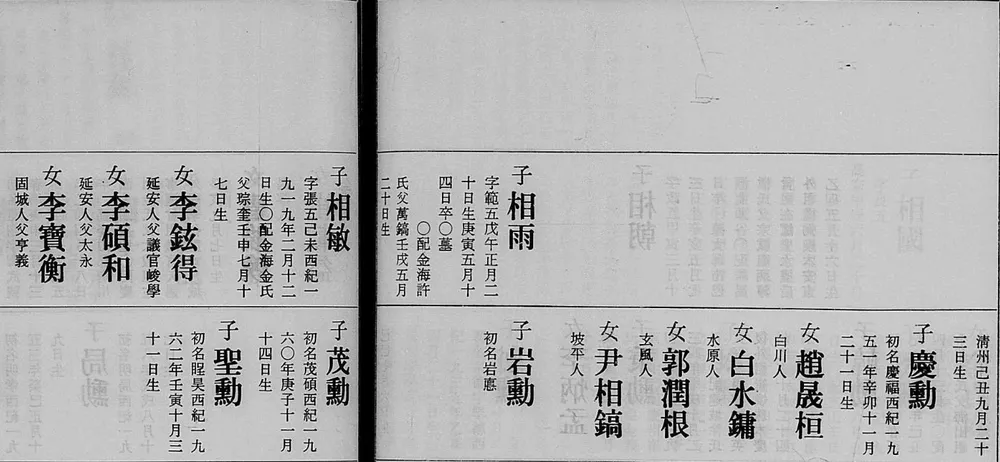 子 相雨
字範五戊午正月二
十日生庚寅五月十
四日卒〇墓
〇配金海許
氏父萬鎬壬戌五月
二十日生
清州己丑九月二十
三日生
子 慶勳
初名慶福西紀一九
五一年辛卯十一月
二十一日生
女 趙晟桓
白川人
女 白水鏞
水原人
女 郭潤根
玄風人
女 尹相鎬
坡平人
子 岩勳
初名岩悳
子 相敏
字張五己未西紀一
九一九年二月十二
日生〇配金海金氏
父琮奎壬申七月十
七日生
女 李鉉得
延安人父議官峻學
女 李碩和
延安人父太永
女 李寶衡
固城人父亨義
子 茂勳
初名茂碩西紀一九
六〇年庚子十一月
十四日生
子 聖勳
初名瑆昊西紀一九
六二年壬寅十月三
十一日生